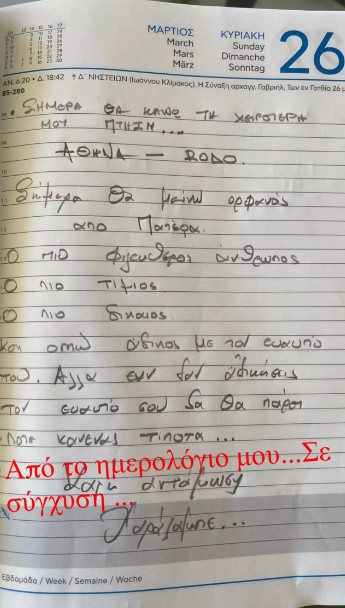 ΜΑΡΤΙΟΣ
March
Mars
März
ΚΥΡΙΑΚΗ
Sunday
Dimanche
Sonntag
26
ΑΝ. 6:20 • Δ. 18:42
† Δ΄ ΝΗΣΤΕΙΩΝ (Ιωάννου Κλίμακος). Η Σύναξη αρχαγγ. Γαβριήλ. Των εν Γοτθία 26 μ
85-280
ΣΗΜΕΡΑ ΘΑ ΚΑΝΩ ΤΗ ΧΕΙΡΟΤΕΡΗ
ΜΟΥ ΠΤΗΣΗ...
ΑΘΗΝΑ — ΡΟΔΟ.
Σήμερα θα μείνω ορφανός
απο Πατέρα.
Ο πιο άνθρωπος
Ο πιο τίμιος
Ο πιο δίκαιος
και άδικος με τον εαυτό
του. Αλλα εαν δεν αδικήσεις
τον εαυτό σου δα θα πάρει
ποτε κανενας τιποτα...
Από το ημερολόγιο μου...Σε
σύγχυση ...
αντάμωση
Εβδομάδα / Week / Semaine / Woche